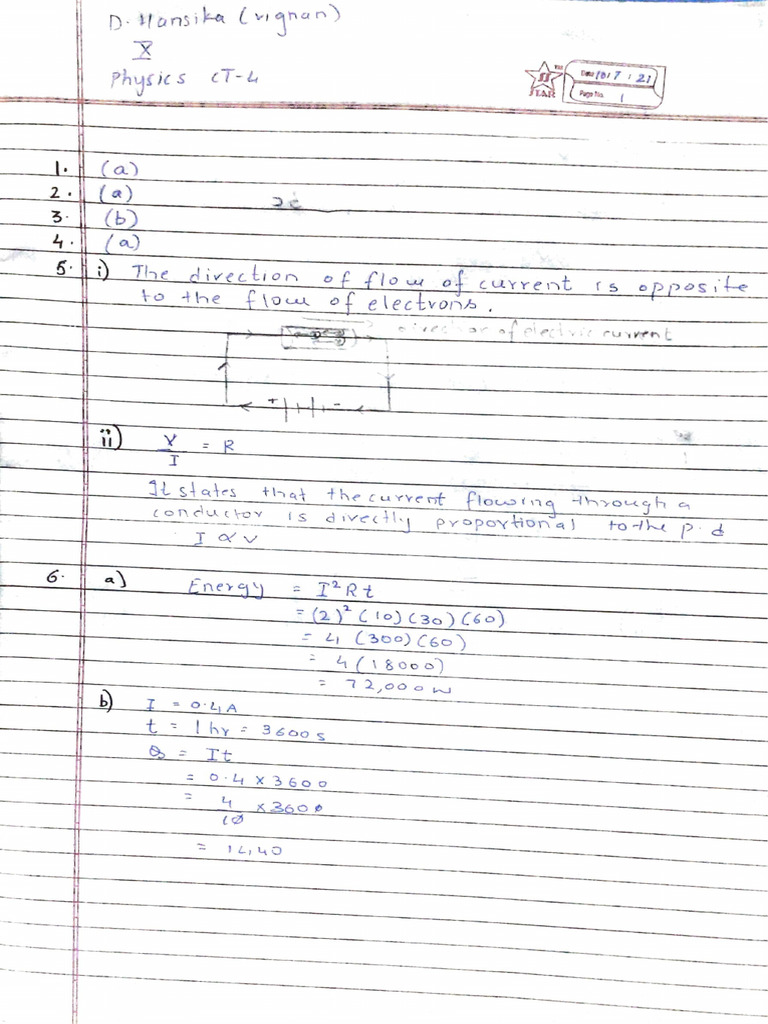 D. Hansika (vignan)
X
Physics CT-4
SS
STAR
Date 10:7:21
Page No. 1
1. (a)
2. (a)
3. (b)
4. (a)
5. i) The direction of flow of current is opposite
to the flow of electrons.
direction of electric current
+ -
ii) V/I = R
It states that the current flowing through a
conductor is directly proportional to the p.d
I ∝ V
6. a) Energy = I²Rt
= (2)² (10) (30) (60)
= 4 (300) (60)
= 4 (18000)
= 72,000 w
b) I = 0.4A
t = 1hr = 3600s
Q = It
= 0.4 × 3600
= 4/10 × 3600
= 1440